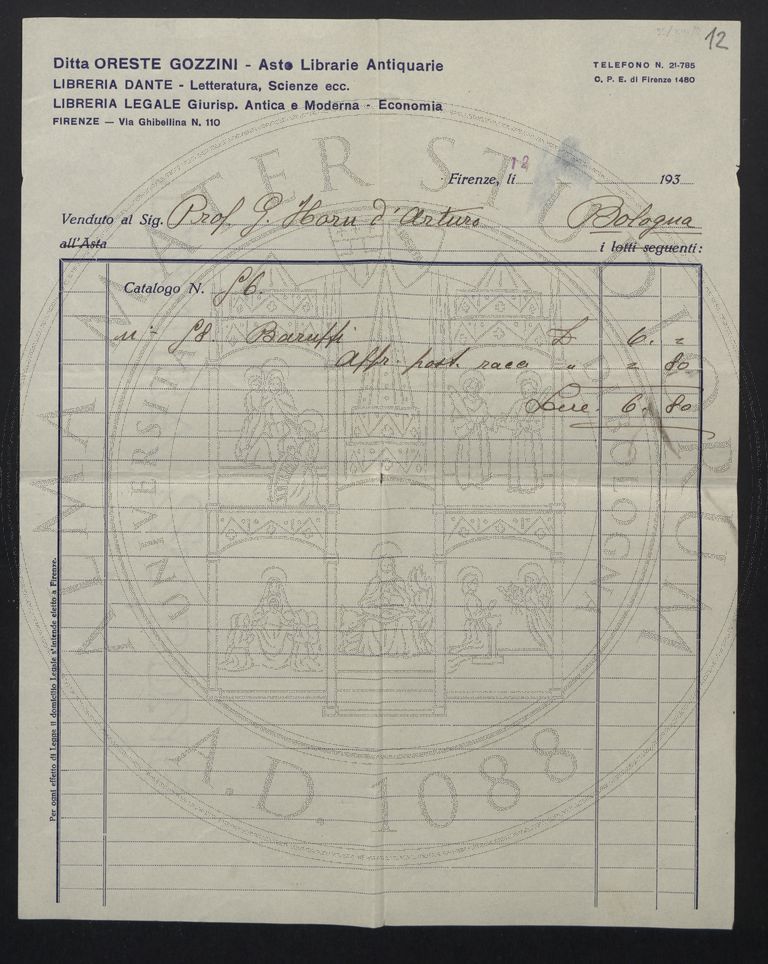 12
Ditta ORESTE GOZZINI - Aste Librarie Antiquarie
LIBRERIA DANTE - Letteratura, Scienze ecc.
LIBRERIA LEGALE Giurisp. Antica e Moderna - Economia
FIRENZE — Via Ghibellina N. 110
TELEFONO N. 21-785
C. P. E. di Firenze 1480
Firenze, li 12 193
Venduto al Sig. Prof. G. Horn d'Arturo Bologna
all'Asta i lotti seguenti:
Catalogo N. 56
n° 58. Baruffi £ 6. =
Affr. post. racc. " = 80
Lire. 6. 80
Per ogni effetto di Legge il domicilio Legale s'intende eletto a Firenze.
ALMA MATER STUDIORUM
UNIVERSITÀ DI BOLOGNA
A.D. 1088